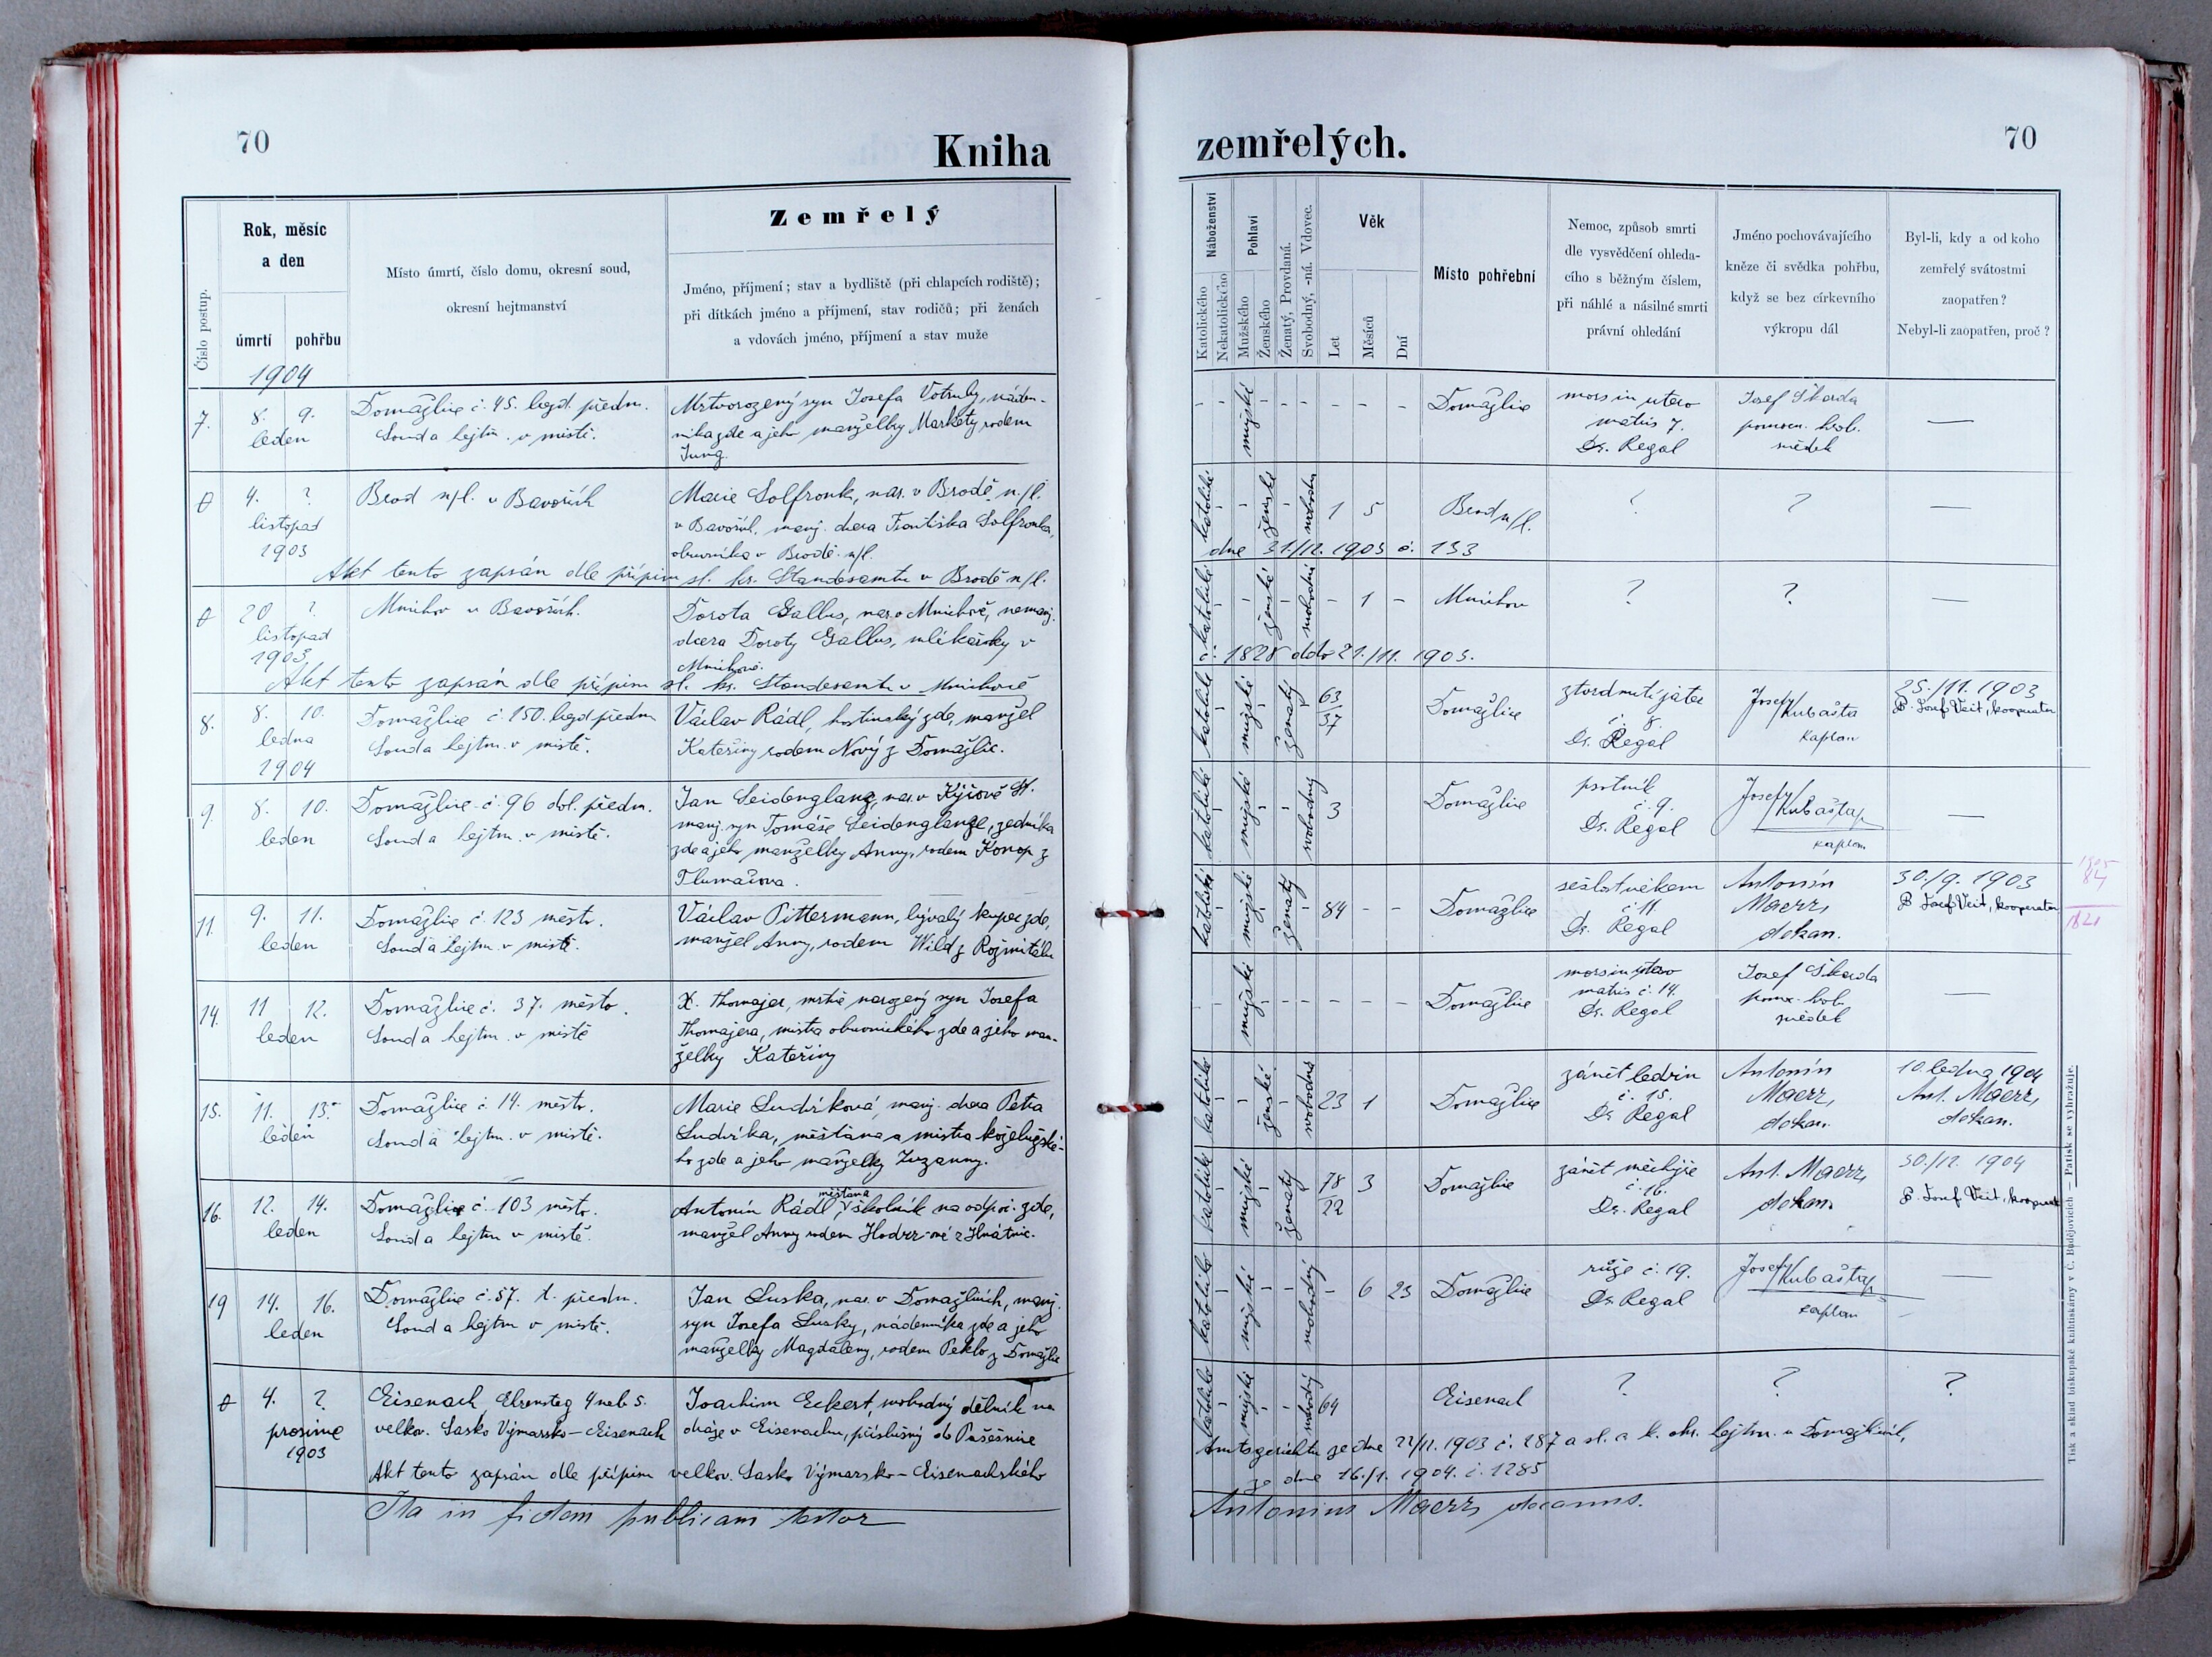 70
Kniha
zemřelých.
70
Číslo postup.
Rok, měsíc
a den
úmrtí
pohřbu
1904
Místo úmrtí, číslo domu, okresní soud,
okresní hejtmanství
Zemřelý
Jméno, příjmení; stav a bydliště (při chlapcích rodiště);
při dítkách jméno a příjmení, stav rodičů; při ženách
a vdovách jméno, příjmení a stav muže
Náboženství
Katolického
Nekatolického
Pohlaví
Mužského
Ženského
Ženatý, Provdaná.
Svobodný, -ná. Vdovec.
Věk
Let
Měsíců
Dní
Místo pohřební
Nemoc, způsob smrti
dle vysvědčení ohleda-
cího s běžným číslem,
při náhlé a násilné smrti
právní ohledání
Jméno pochovávajícího
kněze či svědka pohřbu,
když se bez církevního
výkropu dál
Byl-li, kdy a od koho
zemřelý svátostmi
zaopatřen?
Nebyl-li zaopatřen, proč?
7. 8. 9.
leden
Domažlice č. 45. předm.
Soud a hejtm. v místě.
Mrtvorozený syn Josefa Votruby, náden-
níka zde a jeho manželky Markety rodem
Jung.
mužské
Domažlice
mors in utero
matris 7.
Dr. Regal
Josef Škarda
pomocn. hrob.
svědek
4. ?
listopad
1903
Brod n/l. v Bavořích
Marie Solfronk, nar. v Brodě n./l.
v Bavořích. manž. dcera Františka Solfronka,
obuvníka v Brodě n/l.
katolické ženské svobodná 1 5
Brod n/l.
? ?
Akt tento zapsán dle přípisu sl. kr. Standesamtu v Brodě n/l.
dne 31./12. 1903 č. 133
20 ?
listopad
1903
Mnichov v Bavořích.
Dorota Gallus, nar. v Mnichově, nemanž.
dcera Doroty Gallus, mlékařky v
Mnichově.
katolické ženské svobodná 1
Mnichov
? ?
Akt tento zapsán dle přípisu sl. kr. Standesamtu v Mnichově
č: 1828 ddo 21./11. 1903.
8. 8. 10.
ledna
1904
Domažlice č. 150. předm
Soud a hejtm. v místě.
Václav Rádl, hostinský zde, manžel
Kateřiny rodem Nový z Domažlic.
katolické mužské ženatý 63
37
Domažlice
ztvrdnutí játer
č. 8.
Dr. Regal
Josef Kubašta
kaplan
25./11. 1903
P. Josef Veit, kooperator
9. 8. 10.
leden
Domažlice č. 96 dol. předm.
Soud a hejtm. v místě.
Jan Seidenglanz, nar. v Kyjově St.
manž. syn Tomáše Seidenglanze, zedníka
zde a jeho manželky Anny, rodem Konop z
Tlumačova.
katolické mužské svobodný 3
Domažlice
psotník
č. 9.
Dr. Regal
Josef Kubašta
kaplan
11. 9. 11.
leden
Domažlice č 123 město.
Soud a hejtm. v místě.
Václav Pittermann, bývalý kupec zde,
manžel Anny, rodem Wild z Rožmitálu
katolické mužské ženatý 84
Domažlice
sešlost věkem
č 11
Dr. Regal
Antonín
Maerz,
děkan.
30./9. 1903
P Josef Veit, kooperator
1905
84
1821
14. 11 12.
leden
Domažlice č. 37. město.
Soud a hejtm. v místě
X. Thomajer, mrtvě narozený syn Josefa
Thomajera, mistra obuvnického zde a jeho man-
želky Kateřiny
mužské
Domažlice
mors in utero
matris č. 14.
Dr. Regal
Josef Škarda
pomoc. hrob.
svědek
15. 11. 13.
leden
Domažlice č 14. město.
Soud a hejtm. v místě.
Marie Ludvíková, manž. dcera Petra
Ludvíka, měšťana a mistra koželužské-
ho zde a jeho manželky Zuzanny.
katolické ženské svobodná 23 1
Domažlice
zánět ledvin
č. 15.
Dr Regal
Antonín
Maerz,
děkan.
10. ledna 1904
Ant. Maerz,
děkan.
16. 12. 14.
leden
Domažlice č. 103 město.
Soud a hejtm v místě.
měšťana
Antonín Rádl, školník na odpoč. zde,
manžel Anny rodem
katolické mužské ženatý 78 3
22
Domažlice
zánět měchýře
č. 16.
Dr. Regal
Ant. Maerz,
děkan.
30./12. 1904
P. Josef Veit, kooperator
19 14. 16.
leden
Domažlice č. 57. předm.
Soud a hejtm v místě.
Jan Luska, nar. v Domažlicích, manž.
syn Josefa Lusky, nádenníka zde a jeho
manželky Magdaleny, rodem Peklo z Domažlic
katolické mužské svobodný 6 23
Domažlice
růže č. 19.
Dr Regal
Josef Kubašta
kaplan
4. ?
prosinec
1903
Eisenach, 4 neb 5.
velkov. Sasko Výmarsko-Eisenach
Joachim Eckert, svobodný dělník na
dráze v Eisenachu, příslušný do Pasečnice
katolické mužské svobodný 64
Eisenach
? ? ?
Akt tento zapsán dle přípisu velkov. Sasko Výmarsko-Eisenachského
Amtsgerichtu ze dne 22/12. 1903 č. 287 a sl. c. k. okr. hejtm. v Domažlicích,
ze dne 16./1. 1904. č. 1285
Ita in fidem publicam testor
Antonius Maerz, decanus.
Tisk a sklad biskupské knihtiskárny v Č. Budějovicích — Patisk se vyhražuje.